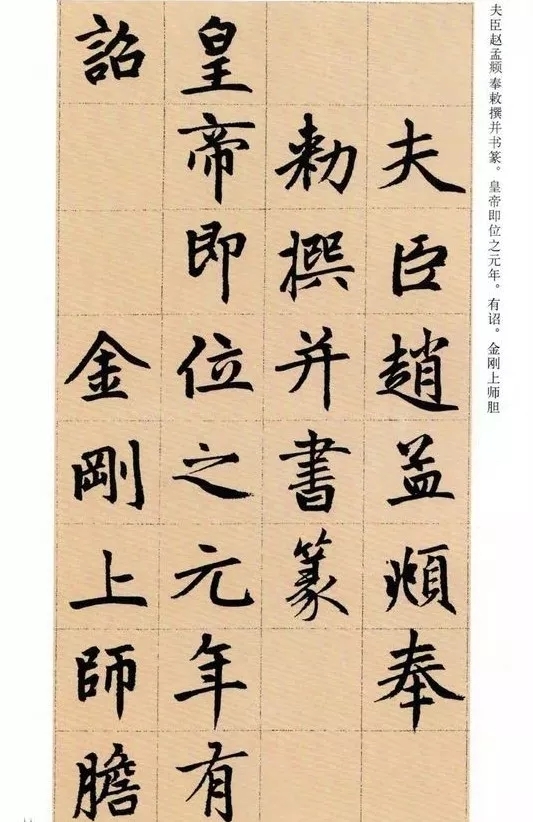 夫臣赵孟頫奉敕撰并书篆。皇帝即位之元年。有诏。金刚上师胆
夫臣趙孟頫奉
勅撰并書篆
皇帝即位之元年有
詔 金剛上師膽